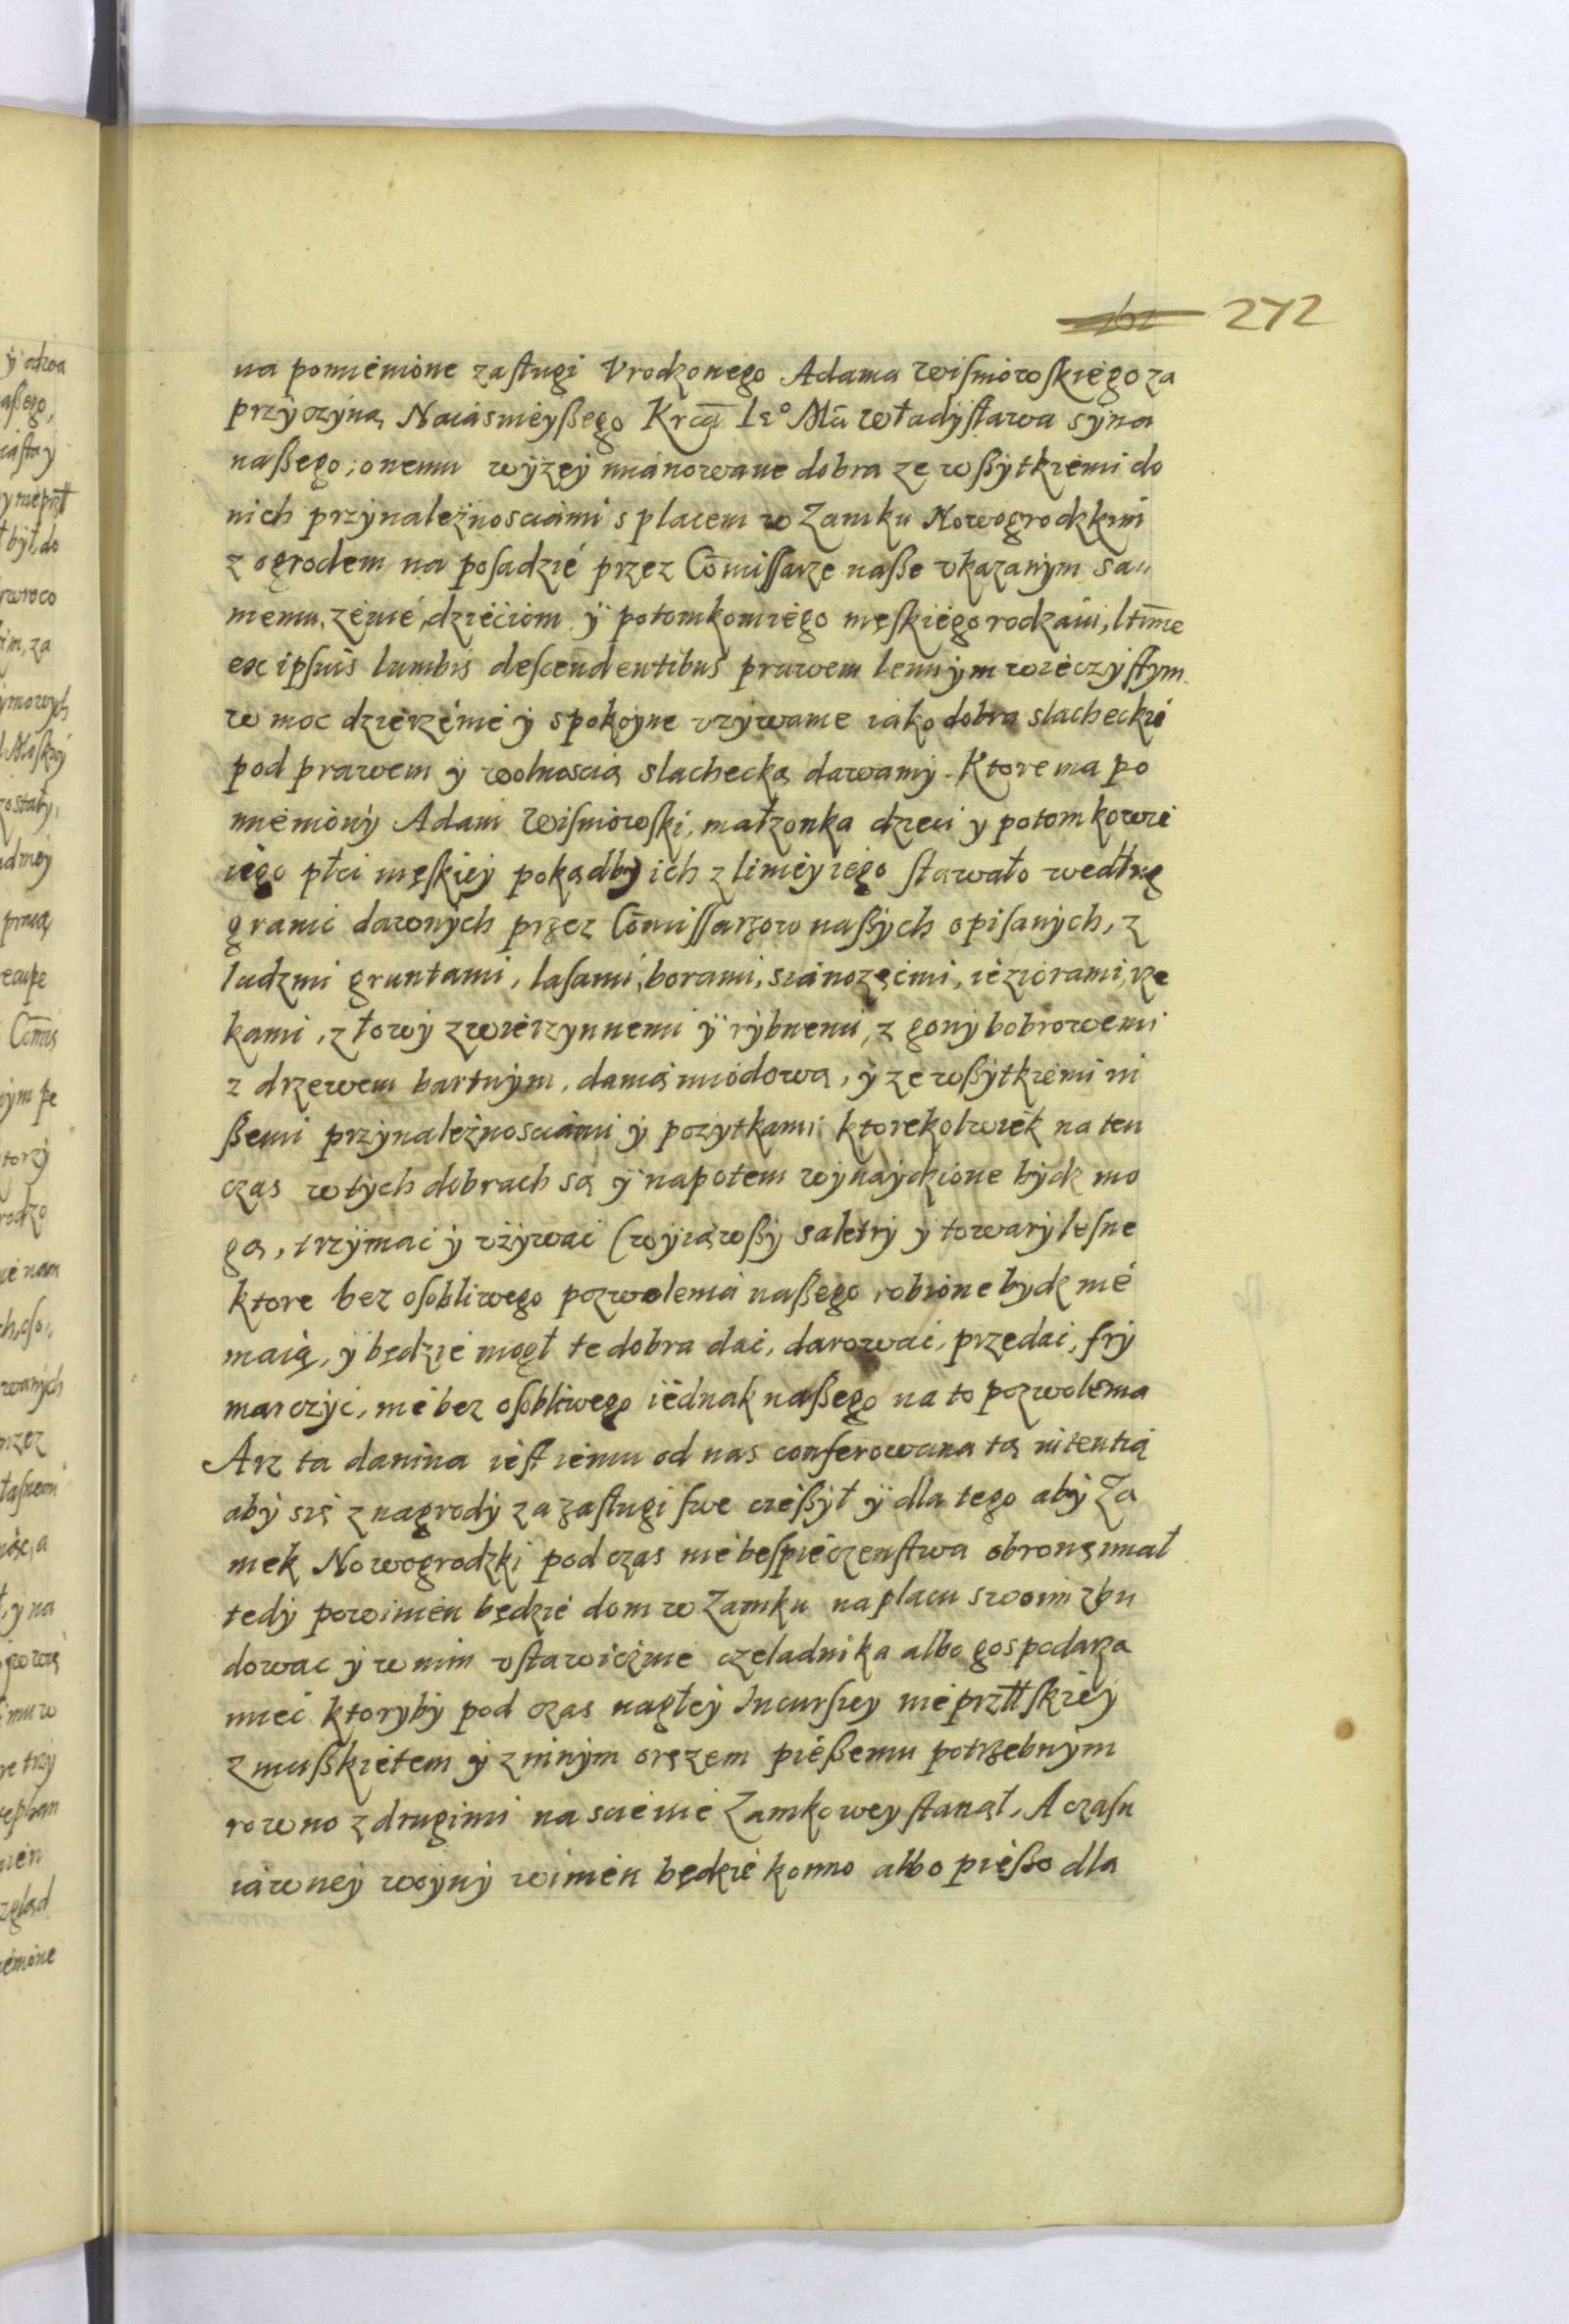 272
na pomienione zasługi Vrodzonego Adama Wisniowskiego za
przyczyną Naiasnieyßego Krca Ieº Mci Władysława syna
naßego, onemu wyzey mianowane dobra ze wßytkiemi do
nich przynależnosciami s placem w Zamku Nowogrodzkim
z ogrodem na posadzie przez Comissarze naße vkazanym sa„
memu, zenie, dzieciom y potomkom iego męskiego rodzaiu, ltime
ex ipsius lumbis descendentibus prawem lennym wieczystym
w moc dzierżenie y spokoyne vzywanie iako dobra slacheckie
pod prawem y wolnoscią slachecką dawamy. Ktore ma po
mieniony Adam Wisniowski, małzonka dzieci y potomkowie
iego płci męskiey pokądby ich z liniey iego stawało według
granic dawnych przez Comissarzow naßych opisanych, z
ludzmi gruntami, lasami, borami, sianozęcimi, ieziorami, rze
kami, z łowy zwierzynnemi y rybnemi, z gony bobrowemi
z drzewem bartnym, danią miodową, y ze wßytkiemi in
ßemi przynależnosciami y pozytkami ktorekolwiek na ten
czas w tych dobrach są y napotem wynaydzione bydz mo
gą, trzymac y vżywac (wyiąwßy saletry y towary lesne
ktore bez osobliwego pozwolenia naßego robione bydz nie
maią, y będzie mogł te dobra dac, darowac, przedac, fry
marczyc, nie bez osobliwego iednak naßego na to pozwolenia
A iz ta danina iest iemu od nas conferowana tą intentią
aby się z nagrody za zasługi swe cießył y dla tego aby Za
mek Nowogrodzki pod czas niebespieczenstwa obronę miał
tedy powinien będzie dom w Zamku na placu swoim zbu
dowac y w nim vstawicznie czeladnika albo gospodarza
miec ktoryby pod czas nagłey Incursiey nieprzłłskiey
z mußkietem y z innym orężem pießemu potrzebnym
rowno z drugimi na scienie Zamkowey stanął, A czasu
iawney woyny winien będzie konno albo pießo dla